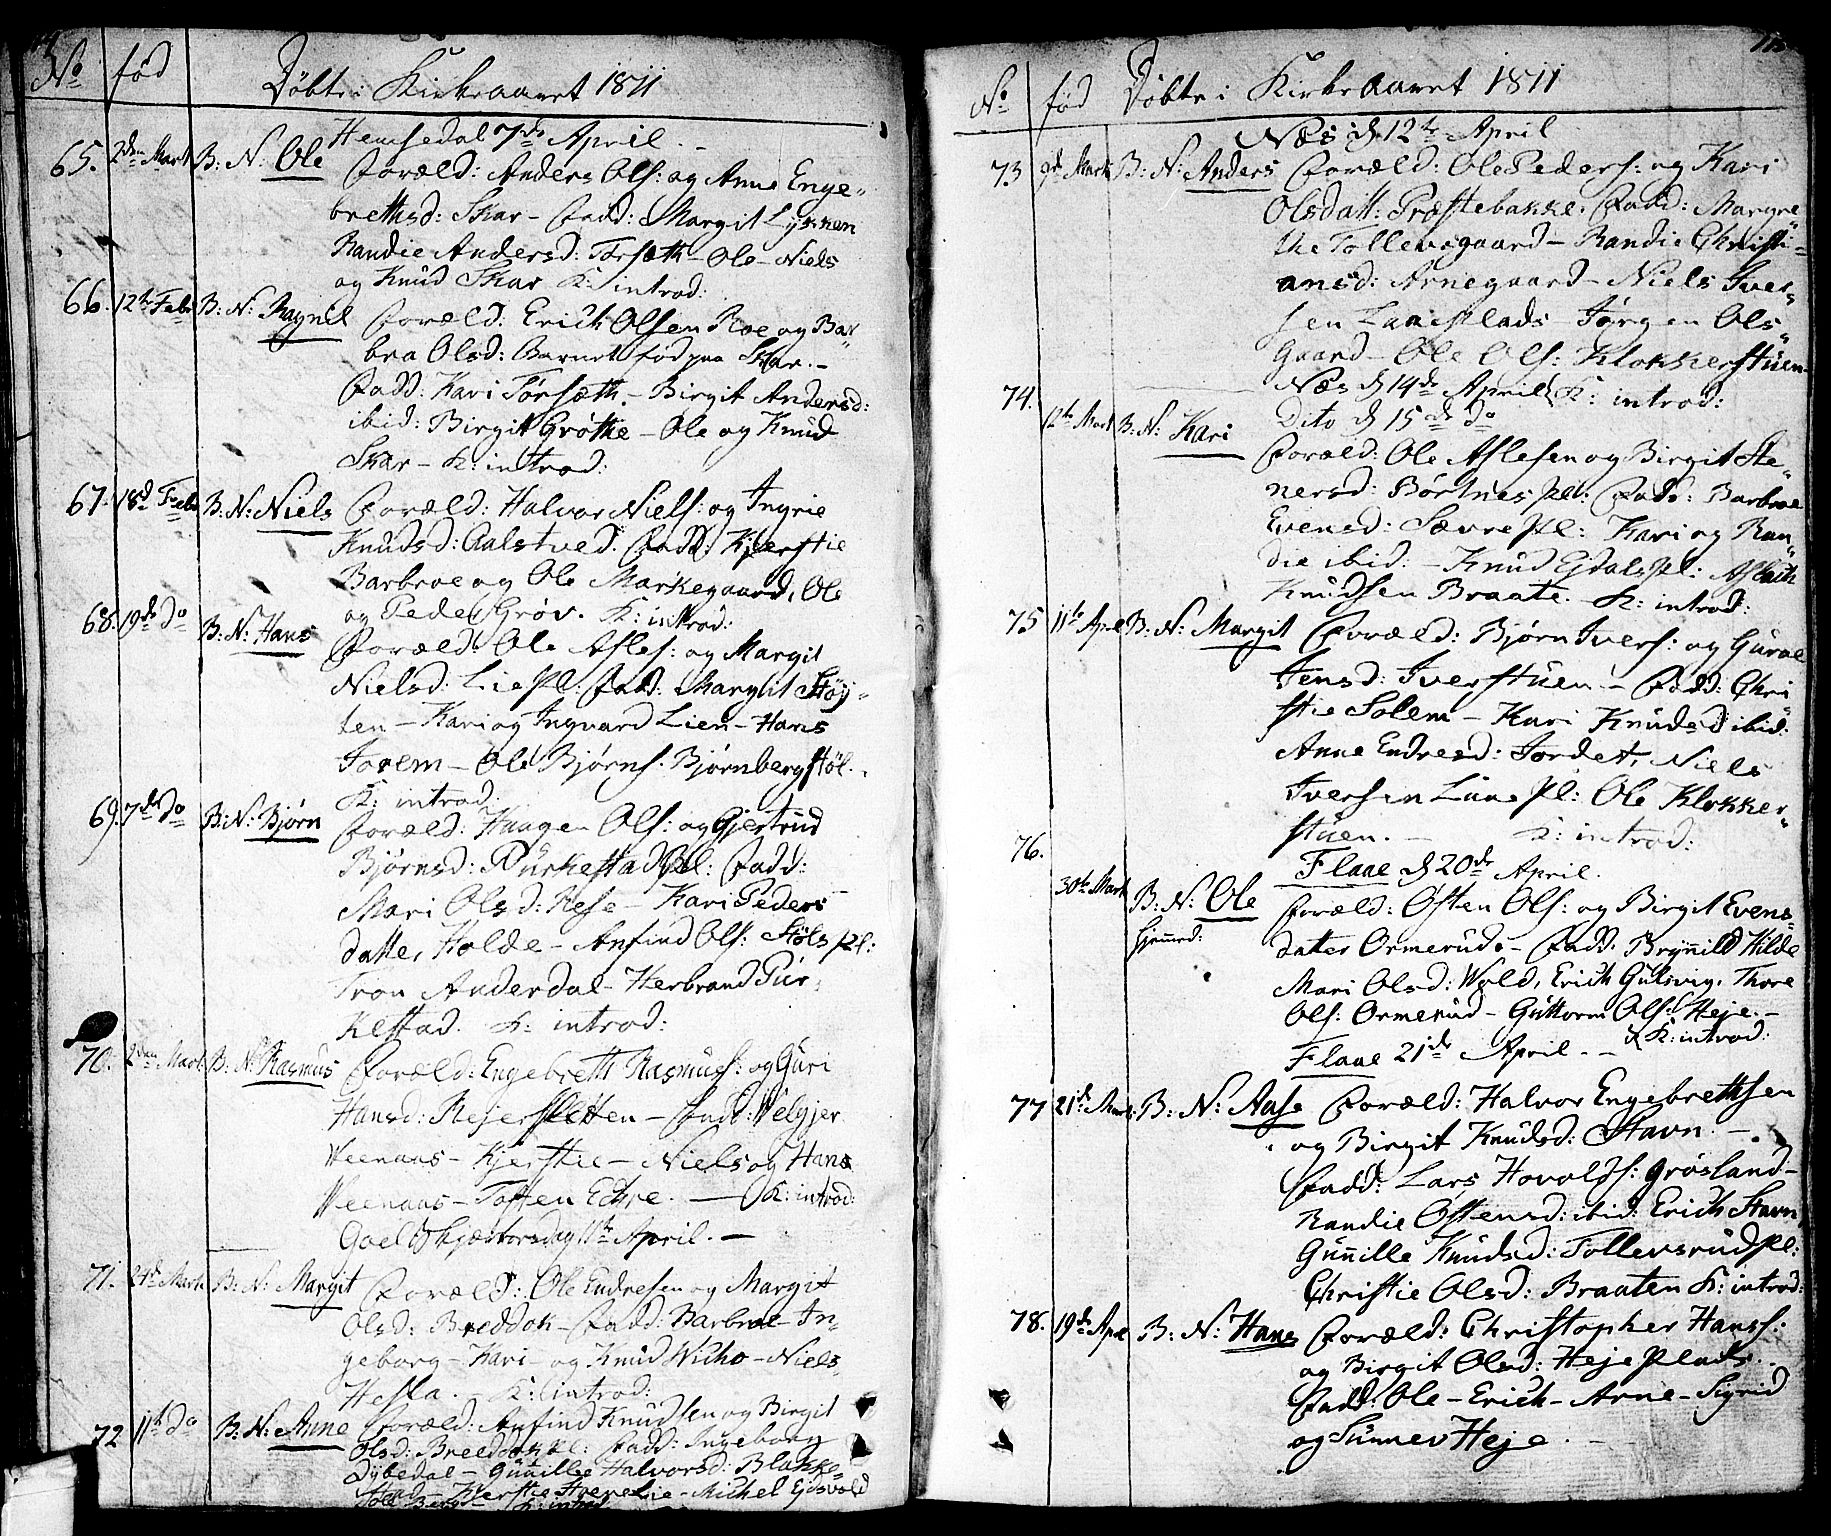 No fød Döbte i Kirkeaaret 1811
Hemsedal 7de April. -
65. 2den Marti B: N: Ole Foræld: Anders Ols: og Anne Enge„
brethsd: Skar - Fadd: Margit Lykken
Randie Andersd: Torsæth - Ole - Niels
og Knud Skar K: introd:
66. 12te Febr B: N: Ragnil Foræld: Erich Olsen Roe og Bar„
bra Olsd: Barnet fød paa Skar. -
Fadd: Kari Törsæth. - Birgit Andersd:
ibid: Birgit Grötte - Ole og Knud
Skar - K: introd:
67. 18d Febr B: N: Niels Foræld: Halvor Niels: og Ingrie
Knudsd: Aalstved. Fadd: Kjerstie
Barbroe og Ole Markegaard, Ole
og Peder Gröv. K: introd:
68. 19de do B: N: Hans Foræld: Ole Asles: og Margit
Nielsd: Lie Pl: Fadd: Margit Stöy-
ten - Kari og Ingvard Lien - Hans
Jorem - Ole Bjørns: Bjørnbergstöl.
K: introd:
69. 7de do B: N: Bjørn Foræld: Haagen Ols: og Gjertrud
Bjørnsd: Purkestad Pl: Fadd:
Mari Olsd: Kese - Kari Peders
datter Holde - Anfind Ols: Stöls Pl:
Tron Anderdal - Herbrand Pur,
kestad. K: introd:
70. 2den Mart: B: N: Rasmus Foræld: Engebreth Rasmuss: og Guri
Hansd: Rejersletten - Fadd: Velgjer
Veenaas - Kjerstie - Niels og Hans
Veenaas - Tosten Echre. - K: introd:
Goel Skjærtorsdag 11te April. -
71. 21d Marti B: N: Margit Foræld: Ole Endresen og Margit
Olsd: Breddok - Fadd: Barbroe - In„
geborg - Kari - og Knud Wicho - Niels
Hesla. K: introd:
72 11te do B: N: Anne Foræld: Anfind Knudsen og Birgit
Olsd: Breddok Pl: Fadd: Ingeborg
Dybedal - Gunnille Halvorsd: Blakke„
stad - Kjerstie - Michel Ejdsvold
K: introd:
115
No fød Döbte i Kirkeaaret 1811
Næs d 12te April
73 9d Marti B: N: Anders Foræld: Ole Peders: og Kari
Olsdatt: Præstebakke. Fadd: Margre„
the Tollevsgaard - Randie Christi„
ansd: Arnegaard - Niels Iver„
sen Laaeplads - Jörgen Ols„
gaard - Ole Ols: Klokkerstuen
74. Næs d 14de April K: introd:
Dito d 15de do
12te Mart B: N: Kari Foræld: Ole Aslesen og Birgit Ste„
nersd: Börtnes pl: Fadd: Barbroe
Evensd: Sævre Pl: Kari og Ran„
die ibid: - Knud Ejdals Pl: Aslach
Knudsen Braate. - K: introd:
75 11te Apr B: N: Margit Foræld: Bjørn Ivers: og Guroe
Jensd: Iverstuen - Fadd: Chri„
stie Solem - Kari Knudsd ibid:
Anne Endresd: Jordet, Niels
Iversen Laae Pl: Ole Klokker„
stuen. - K: introd:
76. Flaae d 20de April.
30te Marti B: N: Ole Foræld: Östen Ols: og Birgit Evens„
hjemmed: datter Ormerud. - Fadd: Brynild Hilde
Mari Olsd: Wold, Erich Gulsvig. Thore
Ols: Ormerud - Guttorm Ols: Heje. -
K: introd:
Flaae 21de April. -
77 21de Mart: B: N: Aase Foræld: Halvor Engebrethsen
og Birgit Knudsd: Stavn. -
Fadd: Lars Hovolds: Grösland -
Randie Östensd: ibid: Erich Stavn
Gunnille Knudsd: Tollevsrud Pl:
Christie Olsd: Braaten K: introd:
78. 19de Apr B: N: Hans Foræld: Christopher Hanss:
og Birgit Olsd: Heje Plads.
Fadd: Ole - Erich - Arne - Sigrid
og Sunnev Heje. -